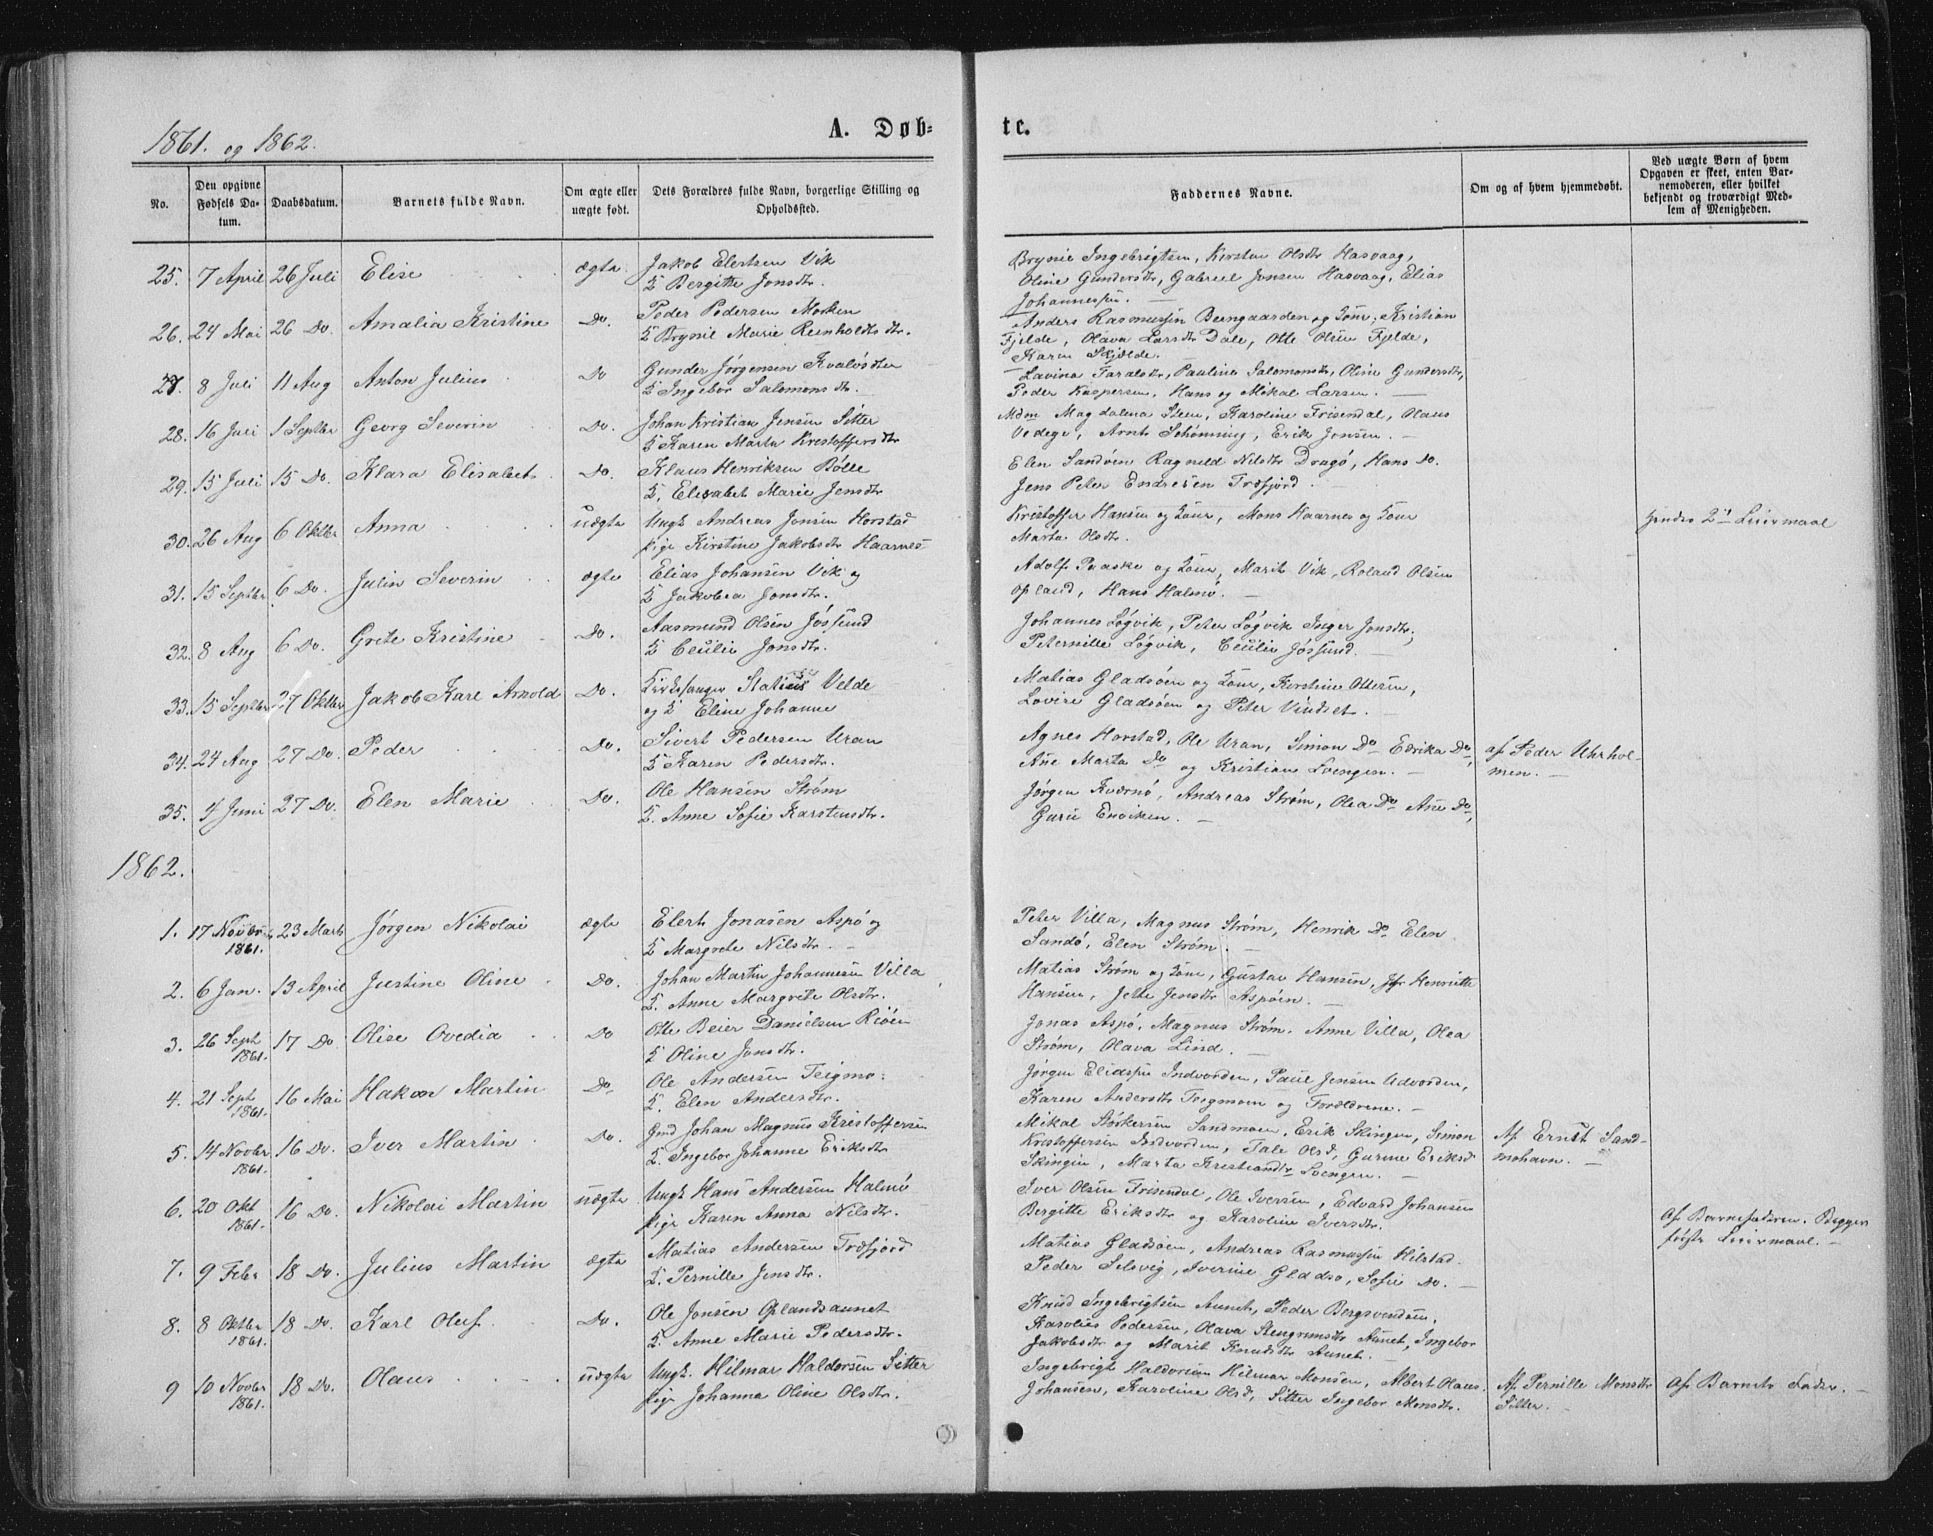 1861. og 1862.
A. Døb-
te.
No.
Den opgivne Fødsels Da-tum.
Daabsdatum.
Barnets fulde Navn.
Om ægte eller uægte født.
Dets Forældres fulde Navn, borgerlige Stilling og Opholdssted.
Faddernes Navne.
Om og af hvem hjemmedøbt.
Ved uægte Børn af hvem Opgaven er skeet, enten Bar-nemoderen, eller hvilket bekjendt og troværdigt Med-lem af Menigheden.
25. 7 April 26 Juli Elise ægte Jakob Elertsen Vik
K Bergitte Jonsdtr.
Brynie Ingebrigtsen, Kirsten Olsdtr Hasvaag,
Oline Gundersdtr, Gabriel Jonsen Hasvaag, Elias
Johannessen. —
26. 24 Mai 26 Do. Amalia Kristine Do. Peder Pedersen Morken
K Brynil Marie Reinholdtsdtr.
Anders Rasmussen Beengaarden og Kone, Kristian
Fjelde, Olava Larsdtr Dale, Otte Olsen Fjelde,
Karen Skjølde. —
27. 8 Juli 11 Aug Anton Julius Do Gunder Jørgensen Kvaløsæter
K Ingebor Salomonsdtr.
Lavina Taralsdtr, Pauline Salomonsdtr, Oline Gundersdtr,
Peder Kaspersen, Hans og Mikal Larsen. —
28. 16 Juli 1 Septbr Georg Severin Do. Johan Kristian Jensen Sitter
K Karen Marta Kristoffersdtr
Mdm Magdalena Steen, Karoline Frisendal, Olaus
Vedege, Arnt Schønning, Erik Jonsen. —
29. 15 Juli 15 Do. Klara Elisabet Do. Klaus Henriksen Bølle
K. Elisabet Marie Jensdtr
Elen Sandøen Ragnild Nilsdtr Dragø, Hans Do.
Jens Peter Endresen Træfjord.
30. 26 Aug 6 Oktbr Anna uægte Ungk Andreas Jonsen Horstad
Pige Kirstine Jakobsdtr Haarnes
Kristoffer Hansen og Kone, Mons Kaarnes og Kone
Marta Olsdtr.
Hendes 2det Leiermaal
31. 15 Septbr 6 Do. Julin Severin ægte Elias Johansen Vik og
K Jakobea Jonsdtr.
Adolf Paaske og Kone, Marit Vik, Roland Olsen
Opland, Hans Halmø. —
32. 8 Aug 6 Do. Grete Kristine Do. Aasmund Olsen Jøssund
K Cesilie Jonsdtr.
Johannes Løgvik, Peter Løgvik Inger Jonsdtr,
Peternille Løgvik, Cecilie Jøssund. —
33. 15 Septbr 27 Oktbr Jakob Karl Arnold Do. Kirkesanger Statius Velde
og K Eline Johanne
Matias Gladsøen og Kone, Kerstine Ottersen,
Lovise Gladsøen og Peter Vindset. —
34. 24 Aug 27 Do. Peder Do. Sivert Pedersen Uran
K Karen Pedersdtr.
Agnes Horstad, Ole Uran, Simon Do Edrika Do,
Ane Marta Do og Kristiane Lvengen. —
af Peder Uhrhol-
men. —
35. 4 Juni 27 Do. Elen Marie Do. Ole Hansen Strøm
K. Anne Sofie Karstensdtr.
Jørgen Kværnø, Andreas Strøm, Olea Do Ane Do,
Gurie Enviken. —
1862.
1. 17 Novbr 1861. 23 Marts Jørgen Nikolai ægte Elert Jonasen Aspø og
K Margrete Nilsdtr. —
Peter Villa, Magnus Strøm, Henrik Do Elen
Sandø, Elen Strøm. —
2. 6 Jan. 13 April Justine Oline Do. Johan Martin Johannesen Villa
K. Anne Margrete Olsdtr.
Matias Strøm og Kone, Gustav Hansen, Jfr Henriette
Hansen, Jette Jensdtr Aspøen. —
3. 26 Sept 1861. 17 Do Olise Ovedia Do Otte Beier Danielsen Riøen
K Oline Jonsdtr.
Jonas Aspø, Magnus Strøm. Anne Villa, Olea
Strøm, Olava Lind. —
4. 21 Sept 1861. 16 Mai Hakon Martin Do. Ole Andersen Teigmo.
K. Elen Andersdtr.
Jørgen Eliassen Indvorden, Paul Jensen Udvorden,
Karen Andersdtr Teigmoen og Forældrene. —
5. 14 Novbr 1861. 16 Do. Iver Martin Do. Gmd Johan Magnus Kristoffersen
K. Ingebor Johanne Eriksdtr
Mikal Størkersen Sandmoen, Erik Skingen, Simon
Kristoffersen Indvorden, Tale Olsd, Gurine Eriksd
Skingen, Marta Kristiansdtr Lvengen. —
Af Ernst Sand-
mohavn. —
6. 20 Okt 1861. 16 Do. Nikolai Martin uægte Ungk Hans Andersen Halmø
Pige Karen Anna Nilsdtr.
Iver Olsen Frisendal, Ole Iversen, Edvard Johansen
Bergitte Eriksdtr og Karoline Iversdtr.
Af Barnefaderen. Begges
første Leiermaal. —
7. 9 Febr 18 Do. Julius Martin ægte Matias Andersen Træfjord
K. Pernille Jensdtr.
Matias Gladsøen, Andreas Rasmussen Hilstad.
Peder Selsvig, Iverine Gladsø, Sofie Do. —
8. 8 Oktbr 1861. 18 Do. Karl Oluf Do. Ole Jonsen Oplandsaunet
K. Anne Marie Pedersdtr.
Knud Ingebrigtsen Aunet, Peder Bergsvendsen,
Karolius Pedersen, Olava Stengrimsdtr Aunet, Ingebor
Jakobsdtr og Marit Knudsdtr Aunet. —
9 10 Novbr 1861. 18 Do. Olaus uægte Ungk. Hilmar Haldorsen Sitter
Pige Johanna Oline Olsdtr.
Ingebrigt Haldorsen Hilmar Monsen, Albert Olaus
Johansen, Karoline Olsd, Sitter Ingebor Monsdtr.
Af Pernille Monsdtr
Sitter. —
Af Barnets Fader. —